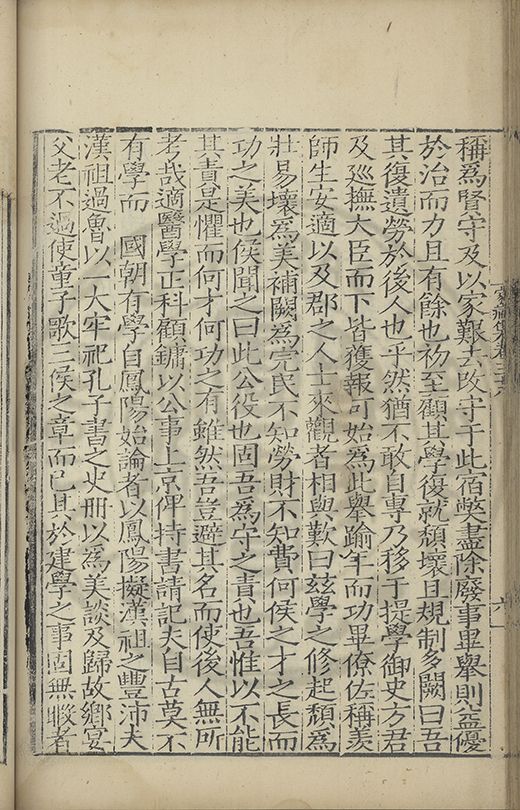 稱爲賢守及以家艱去改守于此宿弊盡除廢事畢舉則益優
於治而力且有餘也初至顧其學復就頹壞且規制多闕曰吾
其復遺勞於後人也乎然猶不敢自專乃移于提學御史方君
及廵撫大臣而下皆獲報可始爲此舉踰年而功畢僚佐稱羡
師生安適以及郡之人士來觀者相與歎曰玆學之修起頹爲
壯易壞爲美補闕爲完民不知勞財不知費何侯之才之長而
功之美也侯聞之曰此公役也固吾爲守之責也吾惟以不能
其責是懼而何才何功之有雖然吾豈避其名而使後人無所
考哉適醫學正科顧鏞以公事上京俾持書請記夫自古莫不
有學而　國朝有學自鳳陽始論者以鳳陽擬漢祖之豐沛夫
漢祖過魯以一大牢祀孔子書之史冊以爲美談及歸故鄉宴
父老不過使童子歌三侯之章而已其於建學之事固無暇者